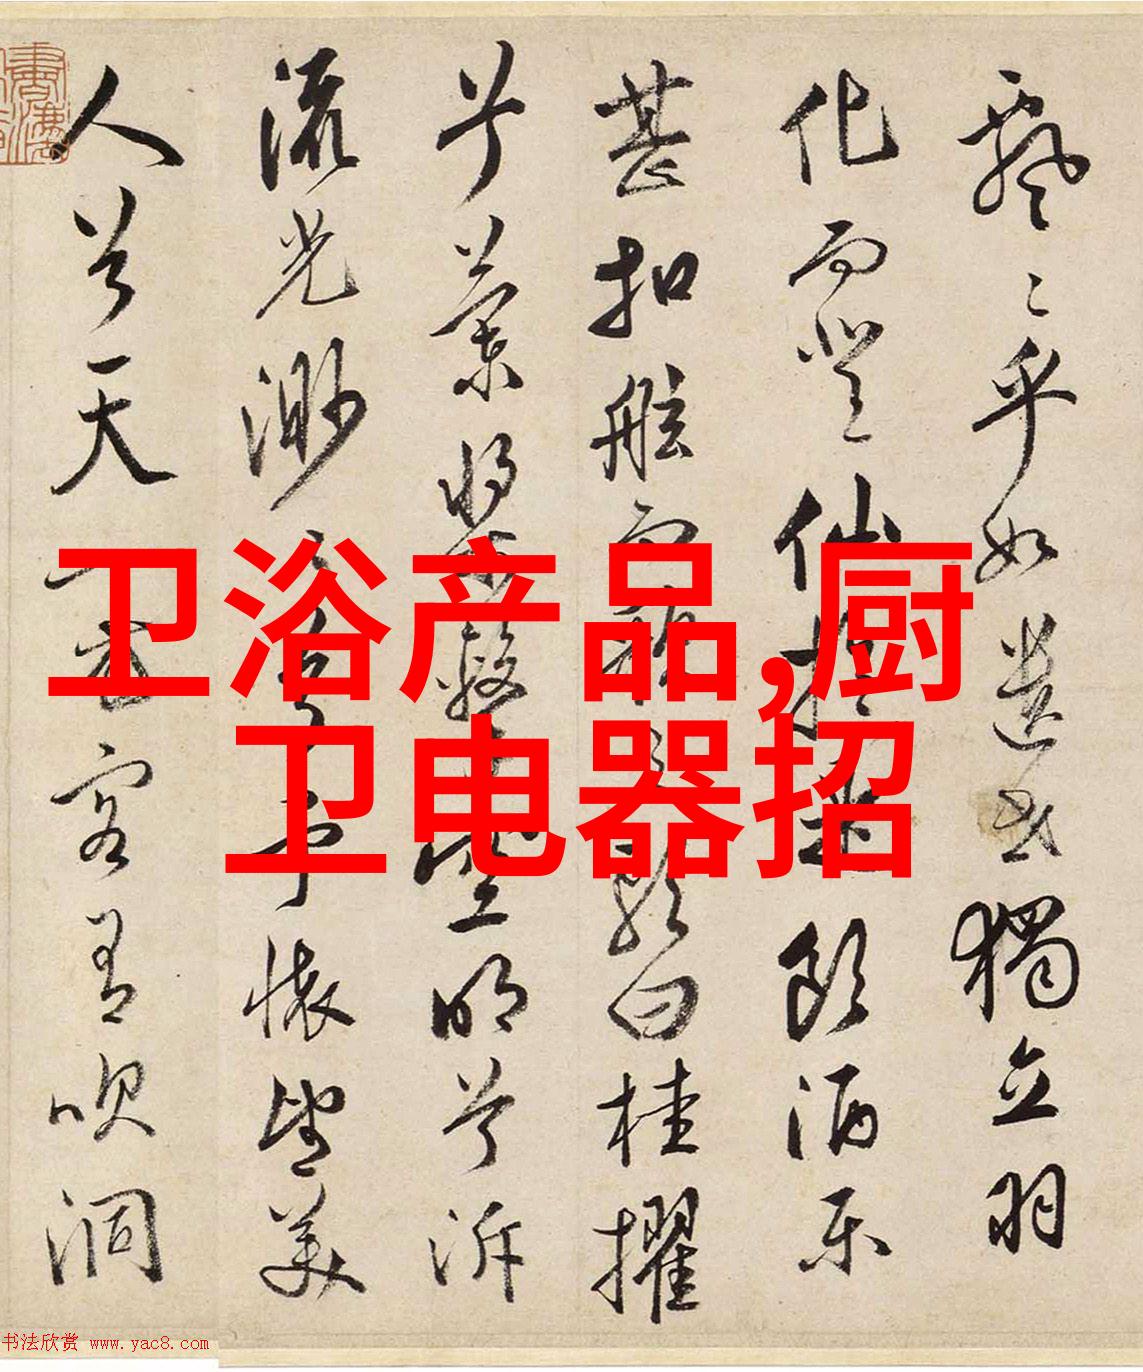 飄〻乎如遺世獨立羽
化而登仙於是飲酒樂
甚扣舷而歌之歌曰桂櫂
兮蘭槳擊空明兮泝
流光渺〻兮予懷望美
人兮天一方客有吹洞
卫浴产品,厨
卫电器招
书法欣赏 www.yac8.com